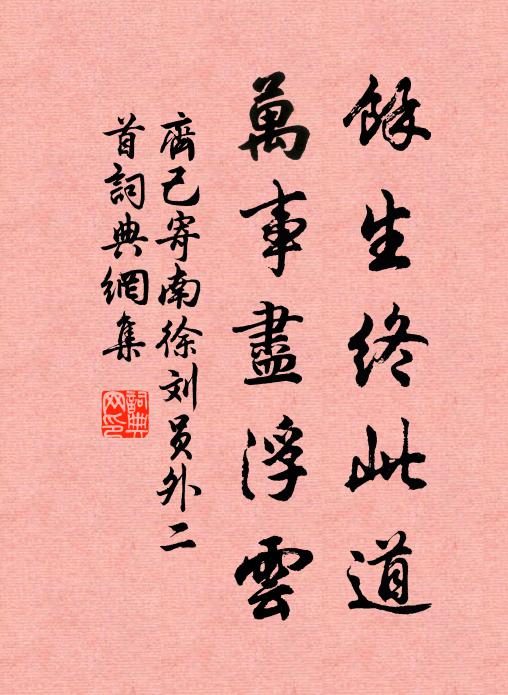 餘生終此道
萬事盡浮雲
齊己寄南徐刘員外二
首詞典網集
詞典
网印